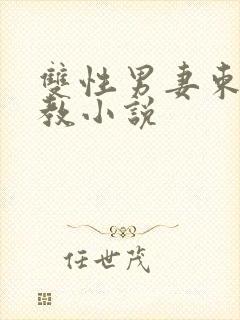 雙性男妻柬
教小說
任世茂